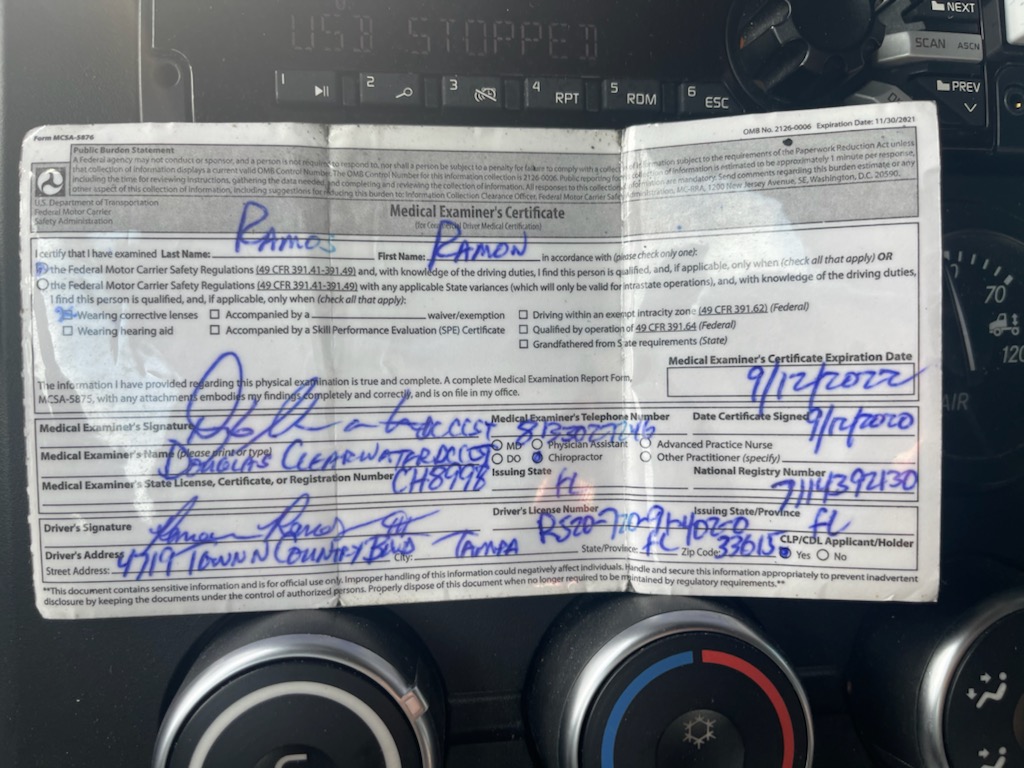 USB STOPPED
NEXT
SCAN ASCN
PREV
1 2 3 4 RPT 5 RDM 6 ESC
Form MCSA-5876
OMB No. 2126-0006 Expiration Date: 11/30/2021
Public Burden Statement
A Federal agency may not conduct or sponsor, and a person is not required to respond to, nor shall a person be subject to a penalty for failure to comply with a collection of information subject to the requirements of the Paperwork Reduction Act unless
that collection of information displays a current valid OMB Control Number. The OMB Control Number for this information collection is 2126-0006. Public reporting for this collection of information is estimated to be approximately 1 minute per response,
including the time for reviewing instructions, gathering the data needed, and completing and reviewing the collection of information. All responses to this collection of information are mandatory. Send comments regarding this burden estimate or any
other aspect of this collection of information, including suggestions for reducing this burden to: Information Collection Clearance Officer, Federal Motor Carrier Safety Administration, MC-RRA, 1200 New Jersey Avenue, SE, Washington, D.C. 20590.
U.S. Department of Transportation
Federal Motor Carrier
Safety Administration
Medical Examiner's Certificate
(for Commercial Driver Medical Certification)
I certify that I have examined Last Name: RAMOS First Name: RAMON in accordance with (please check only one):
the Federal Motor Carrier Safety Regulations (49 CFR 391.41-391.49) and, with knowledge of the driving duties, I find this person is qualified, and, if applicable, only when (check all that apply) OR
the Federal Motor Carrier Safety Regulations (49 CFR 391.41-391.49) with any applicable State variances (which will only be valid for intrastate operations), and, with knowledge of the driving duties,
I find this person is qualified, and, if applicable, only when (check all that apply):
Wearing corrective lenses Accompanied by a waiver/exemption Driving within an exempt intracity zone (49 CFR 391.62) (Federal)
Wearing hearing aid Accompanied by a Skill Performance Evaluation (SPE) Certificate Qualified by operation of 49 CFR 391.64 (Federal)
Grandfathered from State requirements (State)
The information I have provided regarding this physical examination is true and complete. A complete Medical Examination Report Form,
MCSA-5875, with any attachments embodies my findings completely and correctly, and is on file in my office.
Medical Examiner's Certificate Expiration Date
9/12/2022
Medical Examiner's Signature
Medical Examiner's Telephone Number
Date Certificate Signed 9/12/2020
Medical Examiner's Name (please print or type) DOUGLAS CLEARWATER DC CCST
MD Physician Assistant Advanced Practice Nurse
DO Chiropractor Other Practitioner (specify)
Medical Examiner's State License, Certificate, or Registration Number CH8998
Issuing State FL
National Registry Number 7114392130
Driver's Signature Ramon Ramos III
Driver's License Number R520-720-91-402-0
Issuing State/Province FL
Driver's Address
Street Address: 4719 TOWN N COUNTRY BLVD City: TAMPA State/Province: FL Zip Code: 33615
CLP/CDL Applicant/Holder
Yes No
**This document contains sensitive information and is for official use only. Improper handling of this information could negatively affect individuals. Handle and secure this information appropriately to prevent inadvertent
disclosure by keeping the documents under the control of authorized persons. Properly dispose of this document when no longer required to be maintained by regulatory requirements.**
70
120
AIR